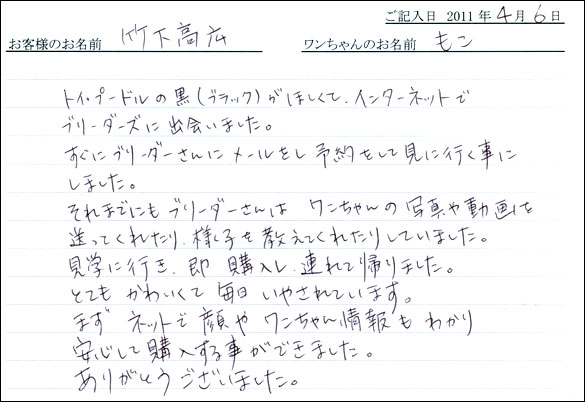 ご記入日 2011年4月6日
お客様のお名前 竹下高広 ワンちゃんのお名前 もこ
トイ・プードルの黒(ブラック)がほしくて、インターネットで
ブリーダーズに出会いました。
すぐにブリーダーさんにメールをし予約をして見に行く事に
しました。
それまでにもブリーダーさんは ワンちゃんの写真や動画を
送ってくれたり、様子を教えてくれたりしていました。
見学に行き、即購入し、連れて帰りました。
とてもかわいくて毎日いやされています。
まずネットで顔やワンちゃん情報もわかり
安心して購入する事ができました。
ありがとうございました。